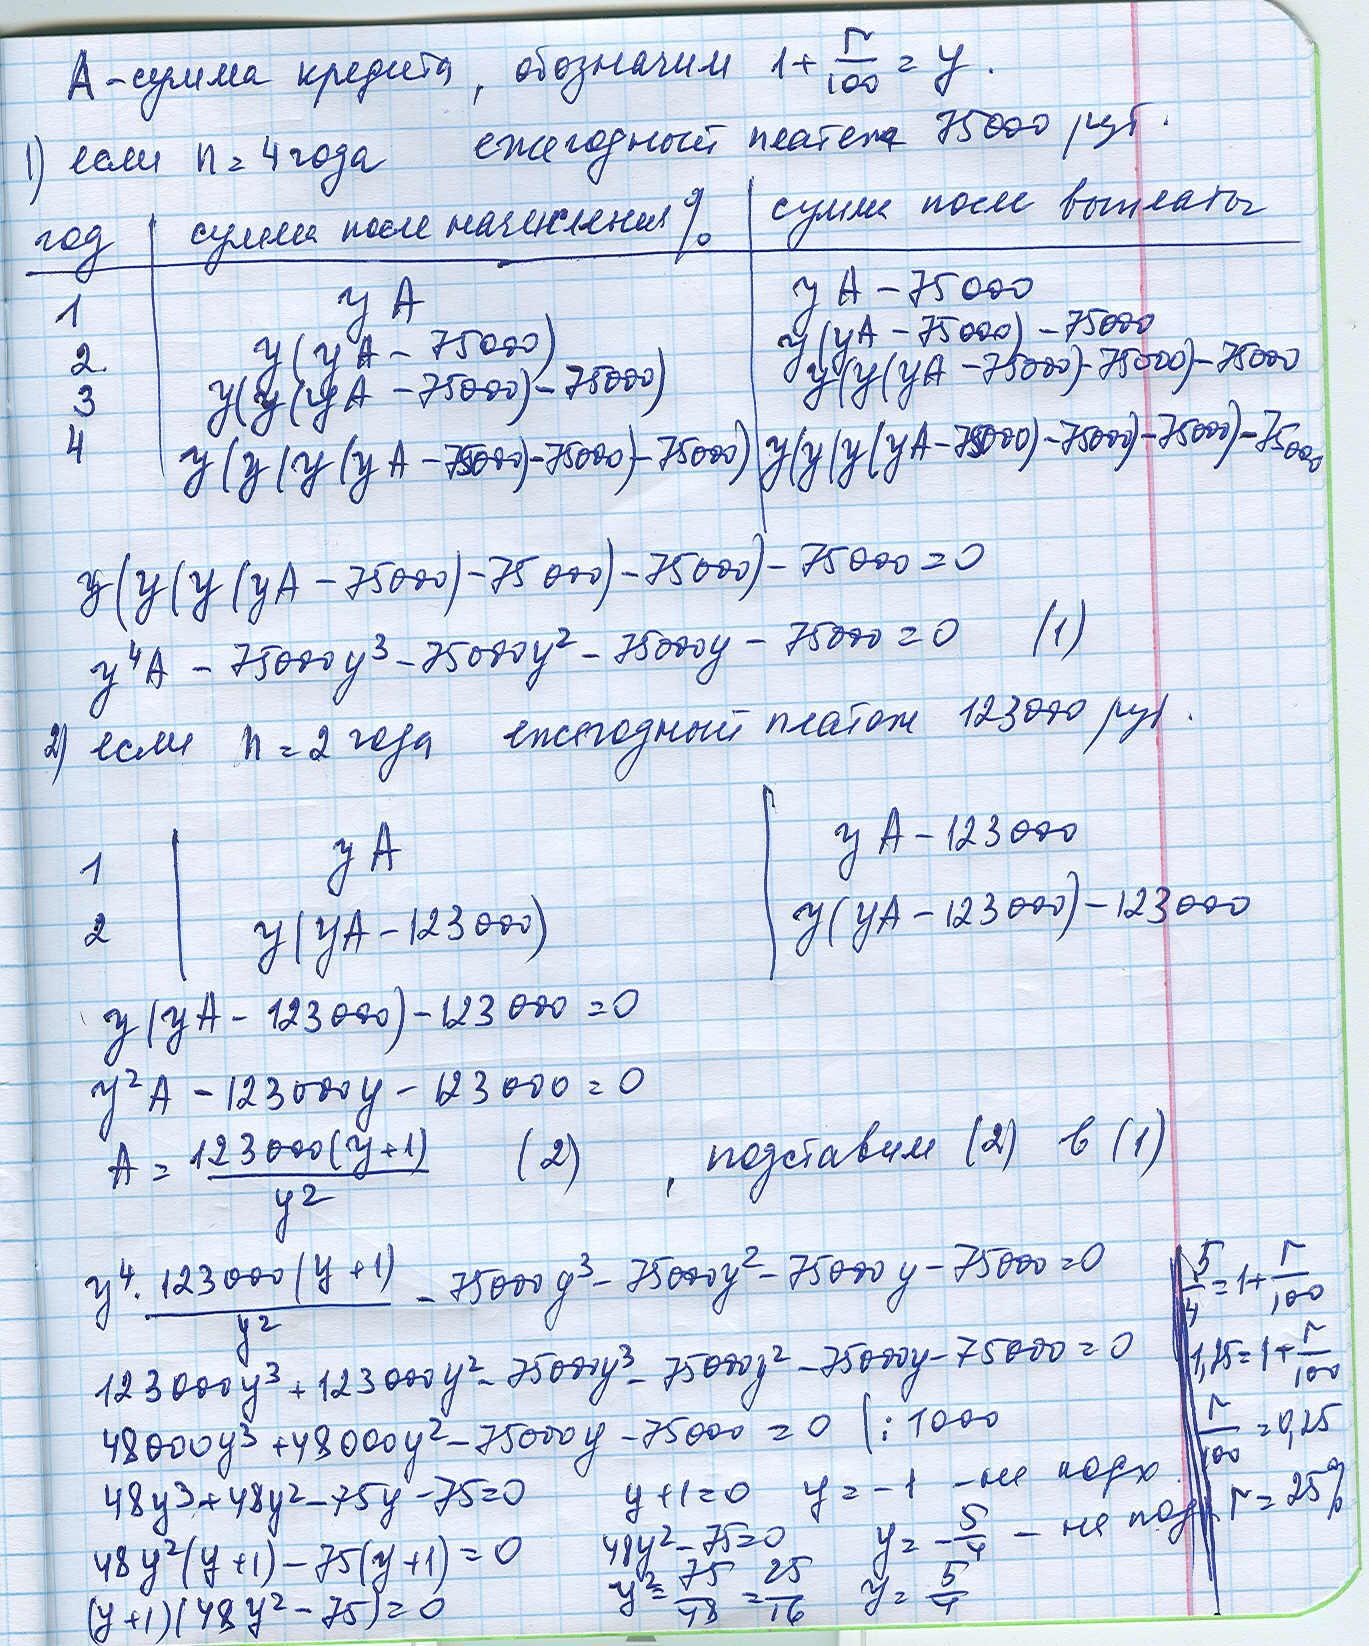 A - сумма кредита, обозначим 1 + r/100 = y.
1) если n = 4 года ежегодный платеж 75000 руб.
год | сумма после начисления % | сумма после выплаты
1 | yA | yA - 75000
2. | y(yA - 75000) | y(yA - 75000) - 75000
3 | y(y(yA - 75000) - 75000) | y(y(yA - 75000) - 75000) - 75000
4 | y(y(y(yA - 75000) - 75000) - 75000) | y(y(y(yA - 75000) - 75000) - 75000) - 75000
y(y(y(yA - 75000) - 75000) - 75000) - 75000 = 0
y⁴A - 75000y³ - 75000y² - 75000y - 75000 = 0 (1)
2) если n = 2 года ежегодный платеж 123000 руб.
1 | yA | yA - 123000
2 | y(yA - 123000) | y(yA - 123000) - 123000
y(yA - 123000) - 123000 = 0
y²A - 123000y - 123000 = 0
A = 123000(y+1)/y² (2) , подставим (2) в (1)
y⁴ · 123000(y+1)/y² - 75000y³ - 75000y² - 75000y - 75000 = 0
123000y³ + 123000y² - 75000y³ - 75000y² - 75000y - 75000 = 0
48000y³ + 48000y² - 75000y - 75000 = 0 | : 1000
48y³ + 48y² - 75y - 75 = 0
48y²(y+1) - 75(y+1) = 0
(y+1)(48y² - 75) = 0
y + 1 = 0 y = -1 - не подх.
48y² - 75 = 0 y = -5/4 - не подх.
y² = 75/48 = 25/16 y = 5/4
5/4 = 1 + r/100
1,25 = 1 + r/100
r/100 = 0,25
r = 25%